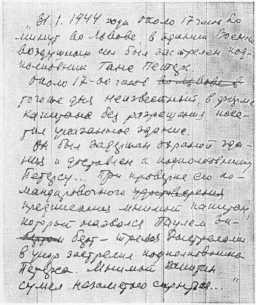 "31.1.1944 года около 17 часов 20
минут во Львове в здании Военно
воздушных сил был застрелен под-
полковник Ганс Петерс.
около 17-00 часов во Львове в
того же дня неизвестный в форме
капитана без разрешения посе-
тил указанное здание.
Он был задержан охраной зда-
ния и доставлен к подполковнику
Петерсу... При проверке его ко-
мандировочного удостоверения
предписания мнимый капитан,
который назвался Паулем Зи-
берт - тремя выстрелами
в упор застрелил подполковника
Петерса. Мнимый капитан
сумел незаметно скрыться..."